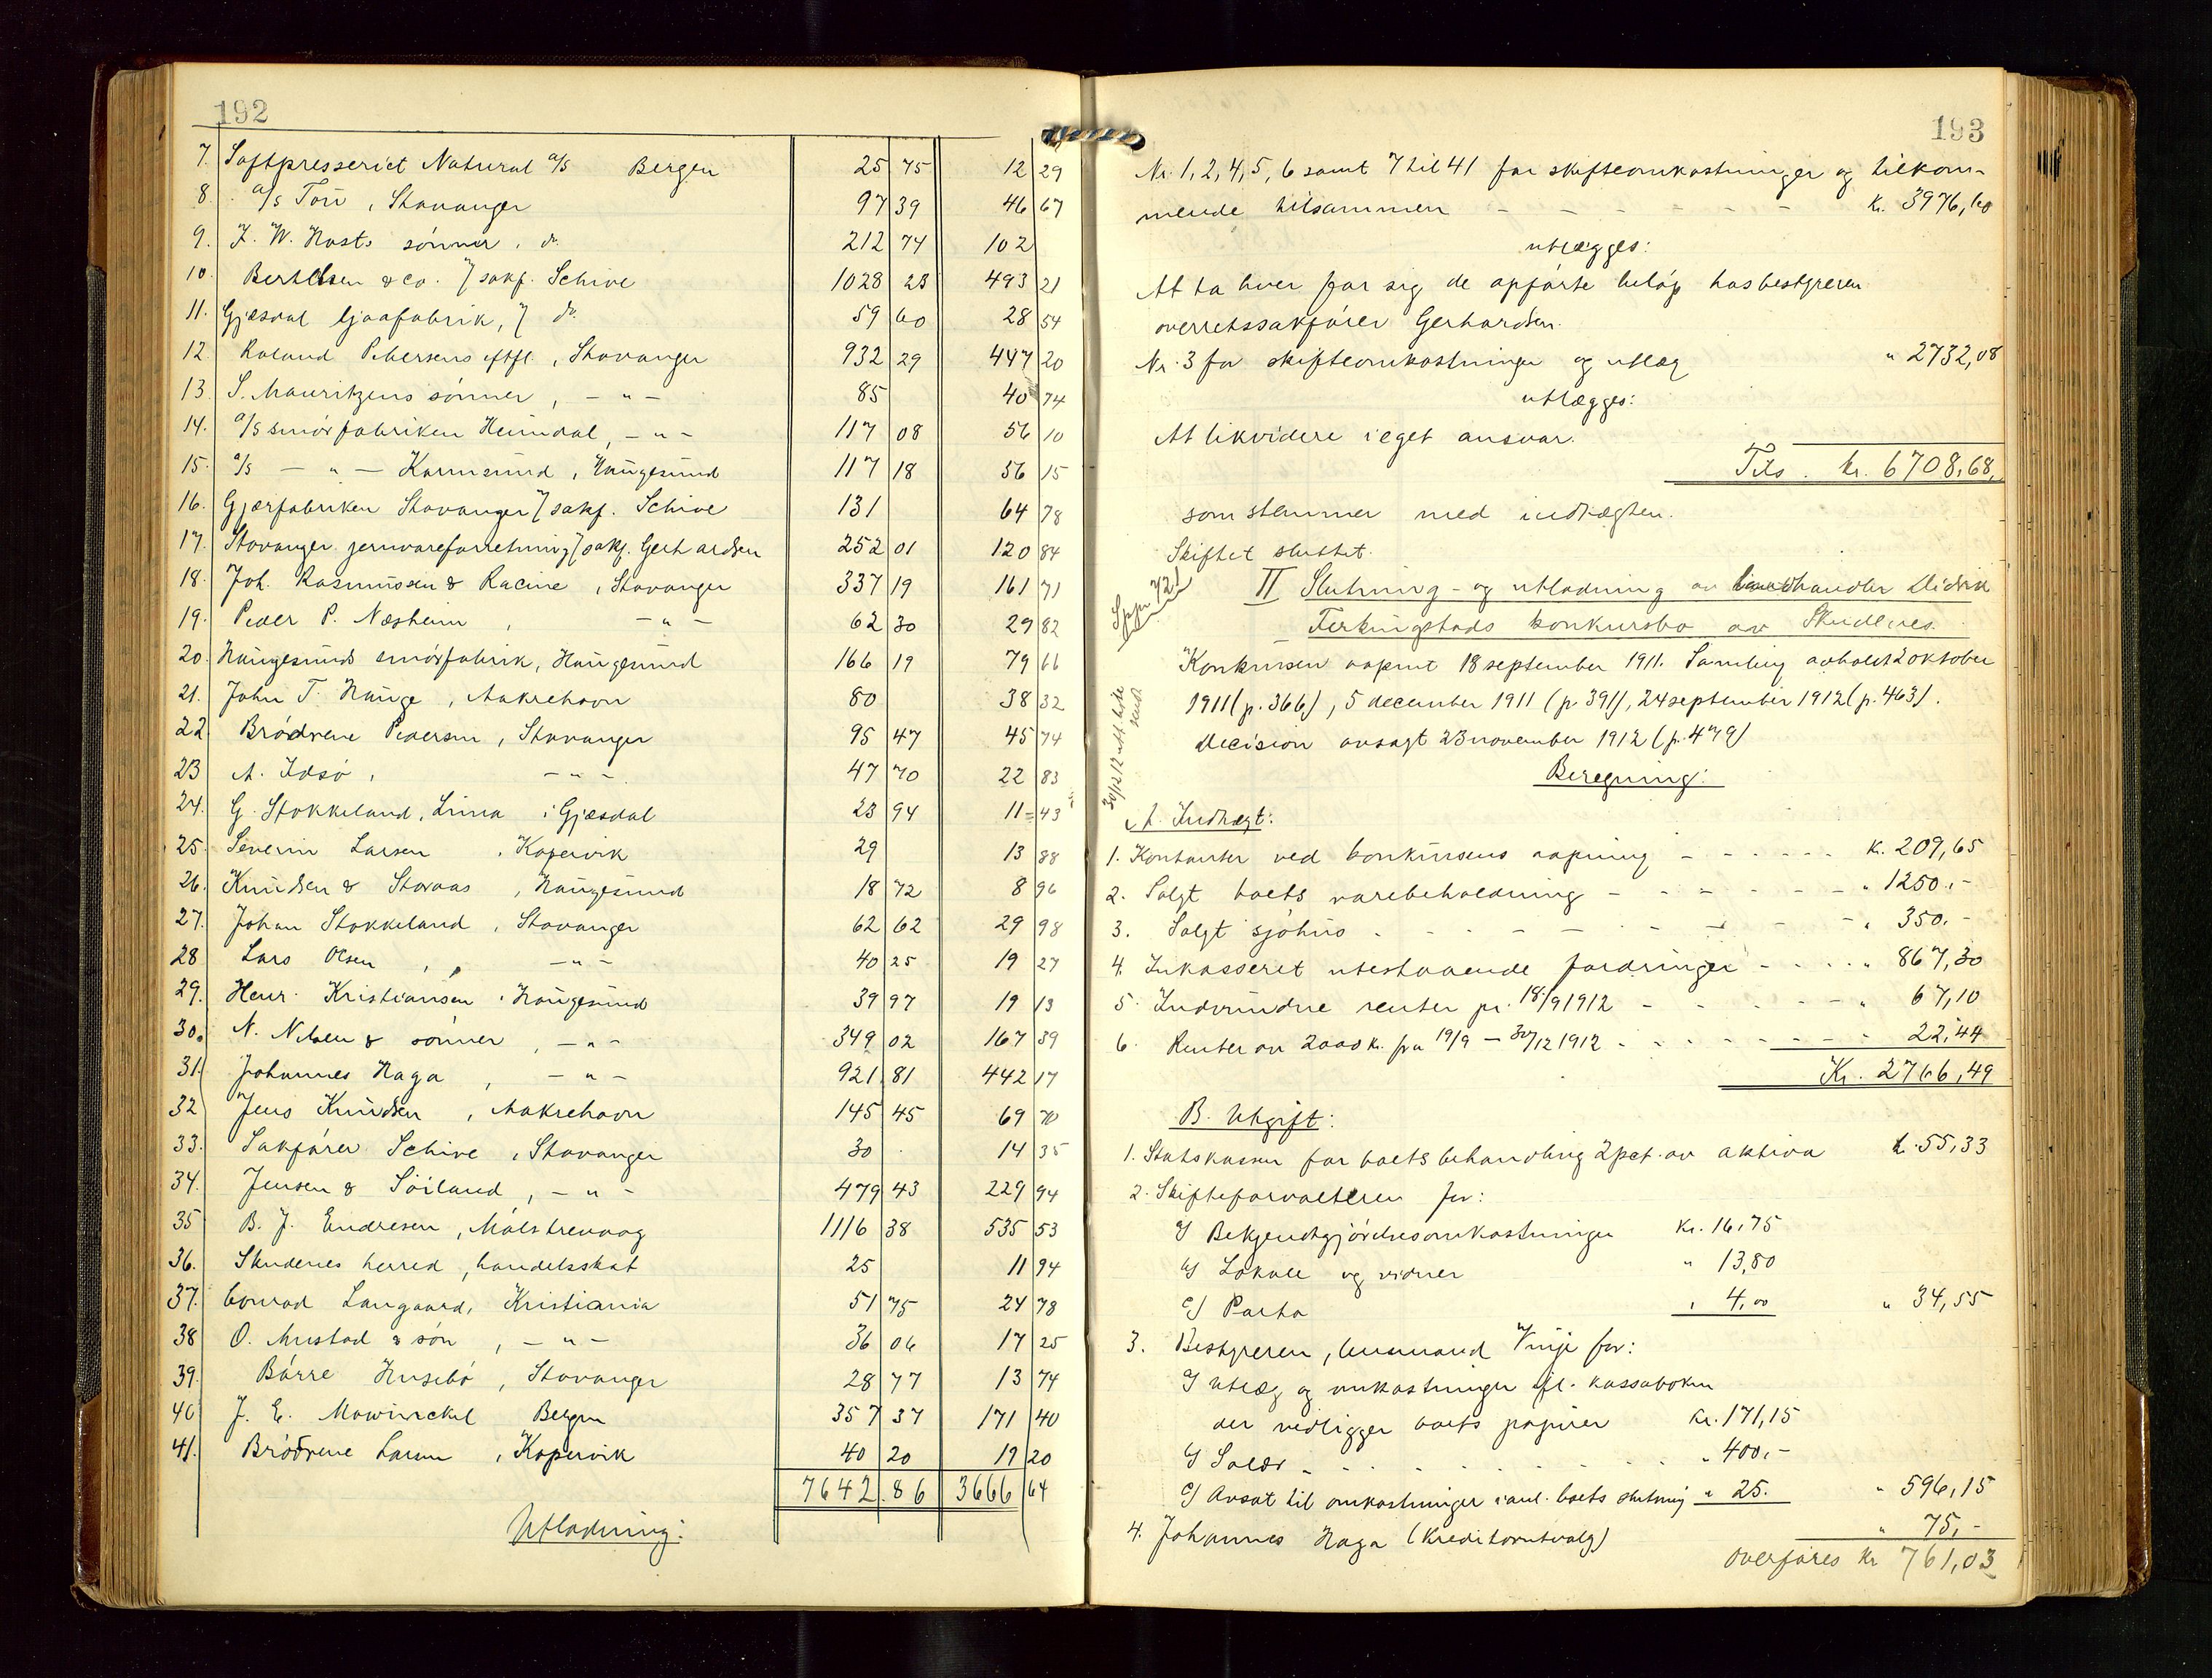 192
7. Saftpresseriet Natural A/S Bergen 25 75 12 29
8. A/S Tou, Stavanger 97 39 46 67
9. Z. W. Hosts sønner, do. 212 74 102
10. Bertelsen & Co. v/ sakf. Schive 1028 23 493 21
11. Gjæsdal Gjaafabrik, v/ do. 59 60 28 54
12. Roland Petersens eftfl., Stavanger 932 29 447 20
13. S. Mauritzens sønner, - " - 85 40 74
14. A/S smørfabriken Heimdal, - " - 117 08 56 10
15. A/S - " - Karmsund, Haugesund 117 18 56 15
16. Gjærfabriken Stavanger v/ sakf. Schive 131 64 78
17. Stavanger jernvareforretning v/ sakf. Gerhardsen 252 01 120 84
18. Joh. Rasmussen & Racine, Stavanger 337 19 161 71
19. Peder P. Næsheim, - " - 62 30 29 82
20. Haugesunds smørfabrik, Haugesund 166 19 79 66
21. John T. Hauge, Aakrehavn 80 38 32
22. Brødrene Pedersen, Stavanger 95 47 45 74
23 A. Idsø, - " - 47 70 22 83
24. G. Stokkeland, Lima i Gjæsdal 23 94 11 43
25. Severin Larsen, Kopervik 29 13 88
26. Knudsen & Storaas, Haugesund 18 72 8 96
27. Johan Stokkeland, Stavanger 62 62 29 98
28 Lars Olsen, - " - 40 25 19 27
29. Henr. Kristiansen, Haugesund 39 97 19 13
30. N. Nilsen & sønner, - " - 349 02 167 39
31. Johannes Haga, - " - 921 81 442 17
32 Jens Knudsen, Aakrehavn 145 45 69 70
33. Sakfører Schive, Stavanger 30 14 35
34. Jensen & Söiland, - " - 479 43 229 94
35 B. J. Endresen, Mølstrevaag 1116 38 535 53
36. Skudenes herred, handelsskat 25 11 94
37. Conrad Langaard, Kristiania 51 75 24 78
38 O. Mustad & søn, - " - 36 06 17 25
39. Børre Husebø, Stavanger 28 77 13 74
40 J. E. Mowinckel Bergen 357 37 171 40
41. Brødrene Larsen, Kopervik 40 20 19 20
7642.86 3666 64
Utlodning:
193
Nr. 1, 2, 4, 5, 6 samt 7 til 41 for skifteomkostninger og tilkom-
mende tilsammen - - - - - - kr. 3976,60
utlægges:
At ta hver for sig de opførte beløp hos bestyreren
overretssakfører Gerhardsen.
Nr. 3 for skifteomkostninger og utlæg " 2732,08
utlægges:
At likvidere i eget ansvar.
Tils. kr. 6708,68,
som stemmer med indtægten.
Skiftet sluttet.
II Slutning - og utlodning av landhandler Didrik
Ferkingstads konkursbo av Skudenes.
Konkursen aapnet 18 september 1911. Samling avholdt 2 oktober
1911 (p. 366), 5 december 1911 (p. 391), 24 september 1912 (p. 463).
Decision avsagt 23 november 1912 (p. 479)
Beregning:
A. Indtægt:
1. Kontanter ved konkursens aapning - - - - - - kr. 209,65
2. Solgt boets varebeholdning - - - - - - - " 1250.-
3. Solgt sjøhus - - - - - - - - - " 350.-
4. Inkasseret utestaaende fordringer - - - - " 867,30
5. Indvundne renter pr. 18/9 1912 - - - - - - " 67,10
6. Renter av 2000 kr. fra 19/9 - 30/12 1912 - - - - - - " 22,44
Kr. 2766,49
B. Utgift:
1. Statskassen for boets behandling 2 pct. av aktiva kr. 55,33
2. Skifteforvalteren for:
a) Bekjendtgjørelsesomkostninger kr. 16,75
b) Lokale og vidner " 13,80
c) Porto " 4,00 " 34,55
3. Bestyreren, lensmand Vinje for:
a) Utlæg og omkostninger ifl. kassaboken
der vedligger boets papirer kr. 171,15
b) Salær - - - - - - - - " 400.-
c) Avsat til omkostninger i anl. boets slutning " 25. " 596,15
4. Johannes Haga (kreditorutvalg) " 75,-
overføres kr 761,03